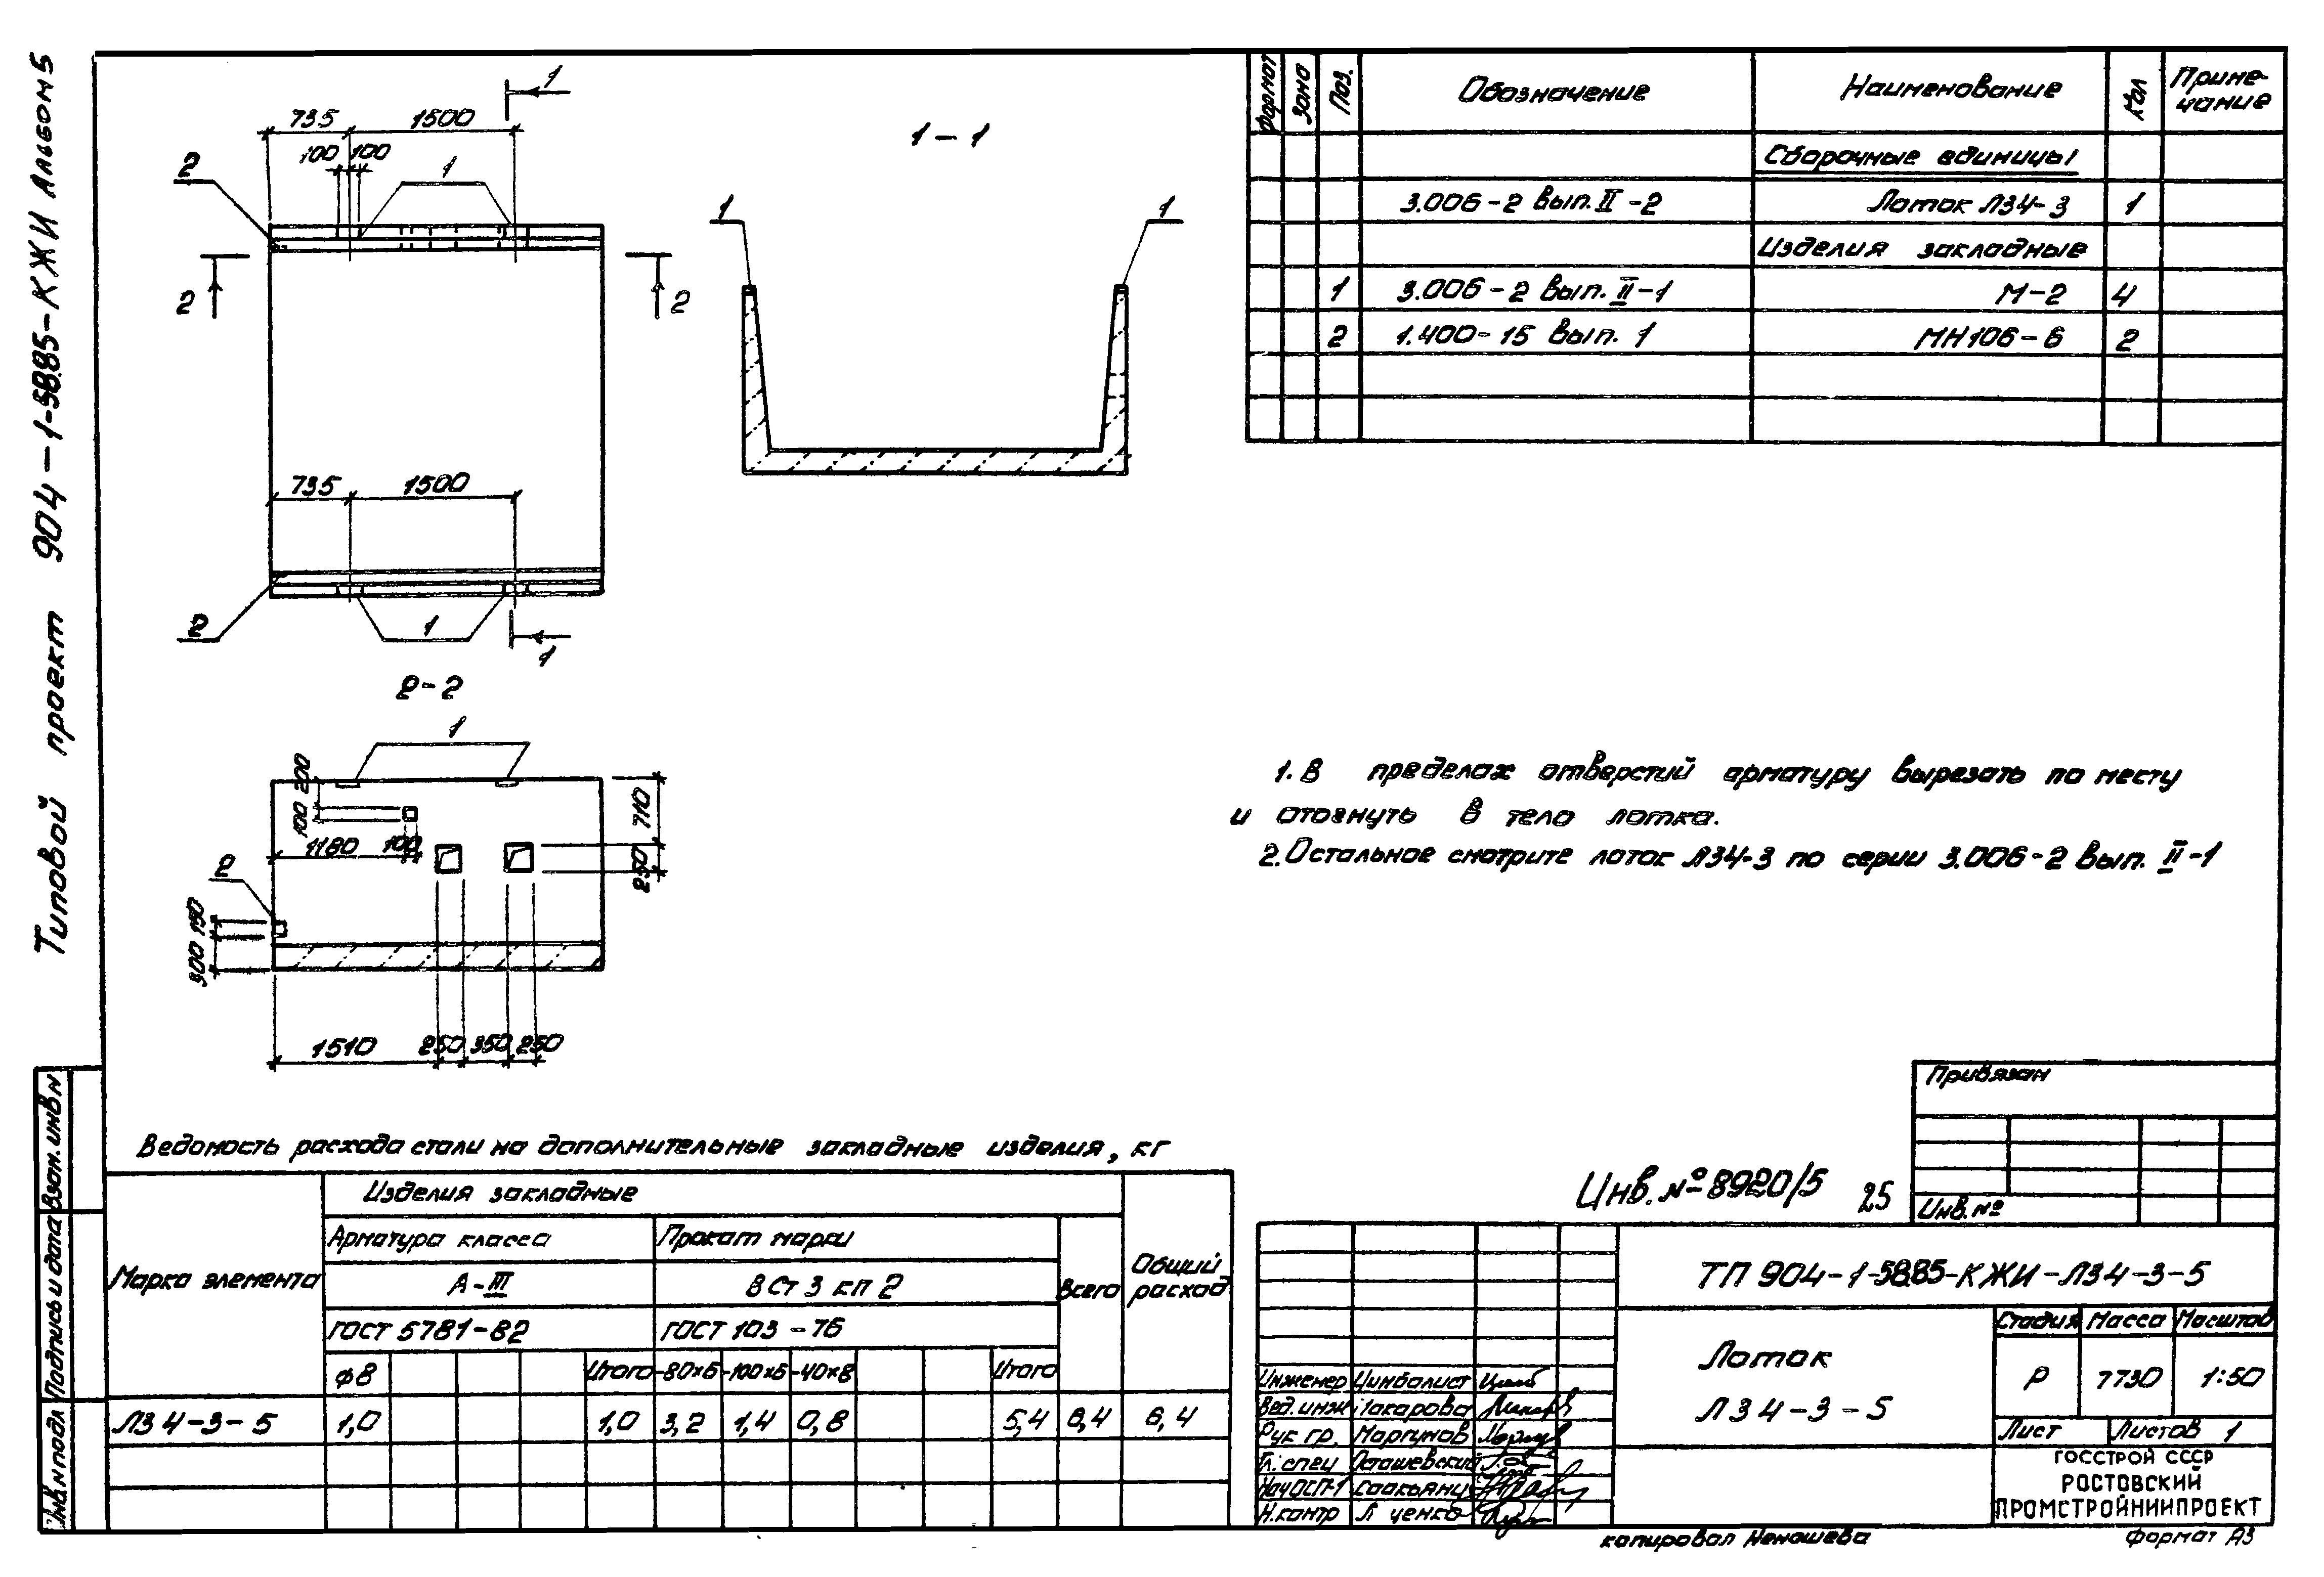 Типовой проект 904-1-58.85-КЖИ Альбом 5
1
735 1500
100 100
1
2
2 2
735 1500
2
1
1
1-1
1 1
2-2
1
200
100
1180 100
710
250
2
150
300
1510 250 350 250
Формат Зона Поз. Обозначение Наименование Кол Приме-
чание
Сборочные единицы
3.006-2 Вып. II-2 Лоток Л34-3 1
Изделия закладные
1 3.006-2 Вып. II-1 М-2 4
2 1.400-15 Вып. 1 МН106-6 2
1. В пределах отверстий арматуру вырезать по месту
и отогнуть в тело лотка.
2. Остальное смотрите лоток Л34-3 по серии 3.006-2 Вып. II-1
Ведомость расхода стали на дополнительные закладные изделия, кг
Марка элемента Изделия закладные Общий
расход
Арматура класса Прокат марки Всего
А-III ВСт 3 кп 2
ГОСТ 5781-82 ГОСТ 103-76
ф8 Итого -80×6 -100×6 -40×8 Итого
Л34-3-5 1,0 1,0 3,2 1,4 0,8 5,4 6,4 6,4
Привязан
Инв. №
Инв. № 8920/5 25
ТП 904-1-58.85-КЖИ-Л34-3-5
Лоток
Л34-3-5
Стадия Масса Масштаб
Р 7730 1:50
Лист Листов 1
Инженер Цимбалист
Вед. инж Макарова
Рук гр. Моргунов
Гл. спец Осташевский
Нач ОСП-1 Саакьянц
Н. контр
ГОССТРОЙ СССР
РОСТОВСКИЙ
ПРОМСТРОЙНИИПРОЕКТ
копировал Ненашева Формат А3
Взам. инв N
Подпись и дата
Инв N подл